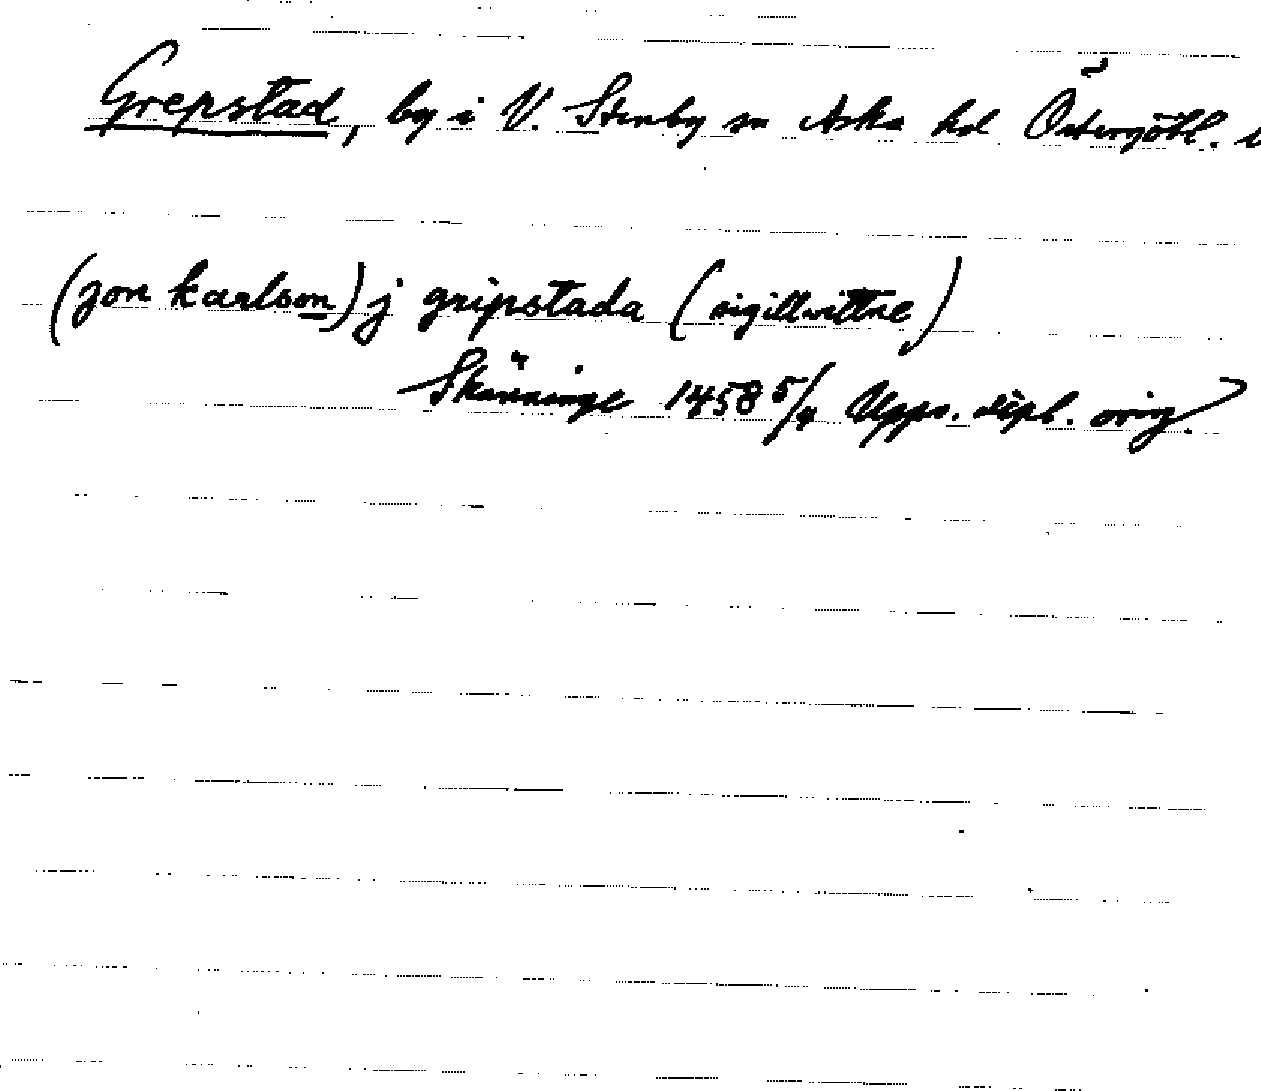 Grepstad, by i V. Stenby sn Aska hd Östergötl.
(jon karlson) j gripstada (sigillvittne)
Skänninge 1458 5/4 Upps. dipl. orig.